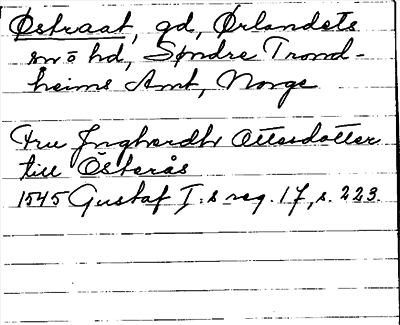 Østraat, gd, Ørlandets
sn o hd, Søndre Trond-
heims Amt, Norge
Fru Jngherdhr Ottesdotter
till Österås
1545 Gustaf I:s reg. 17, s. 223.